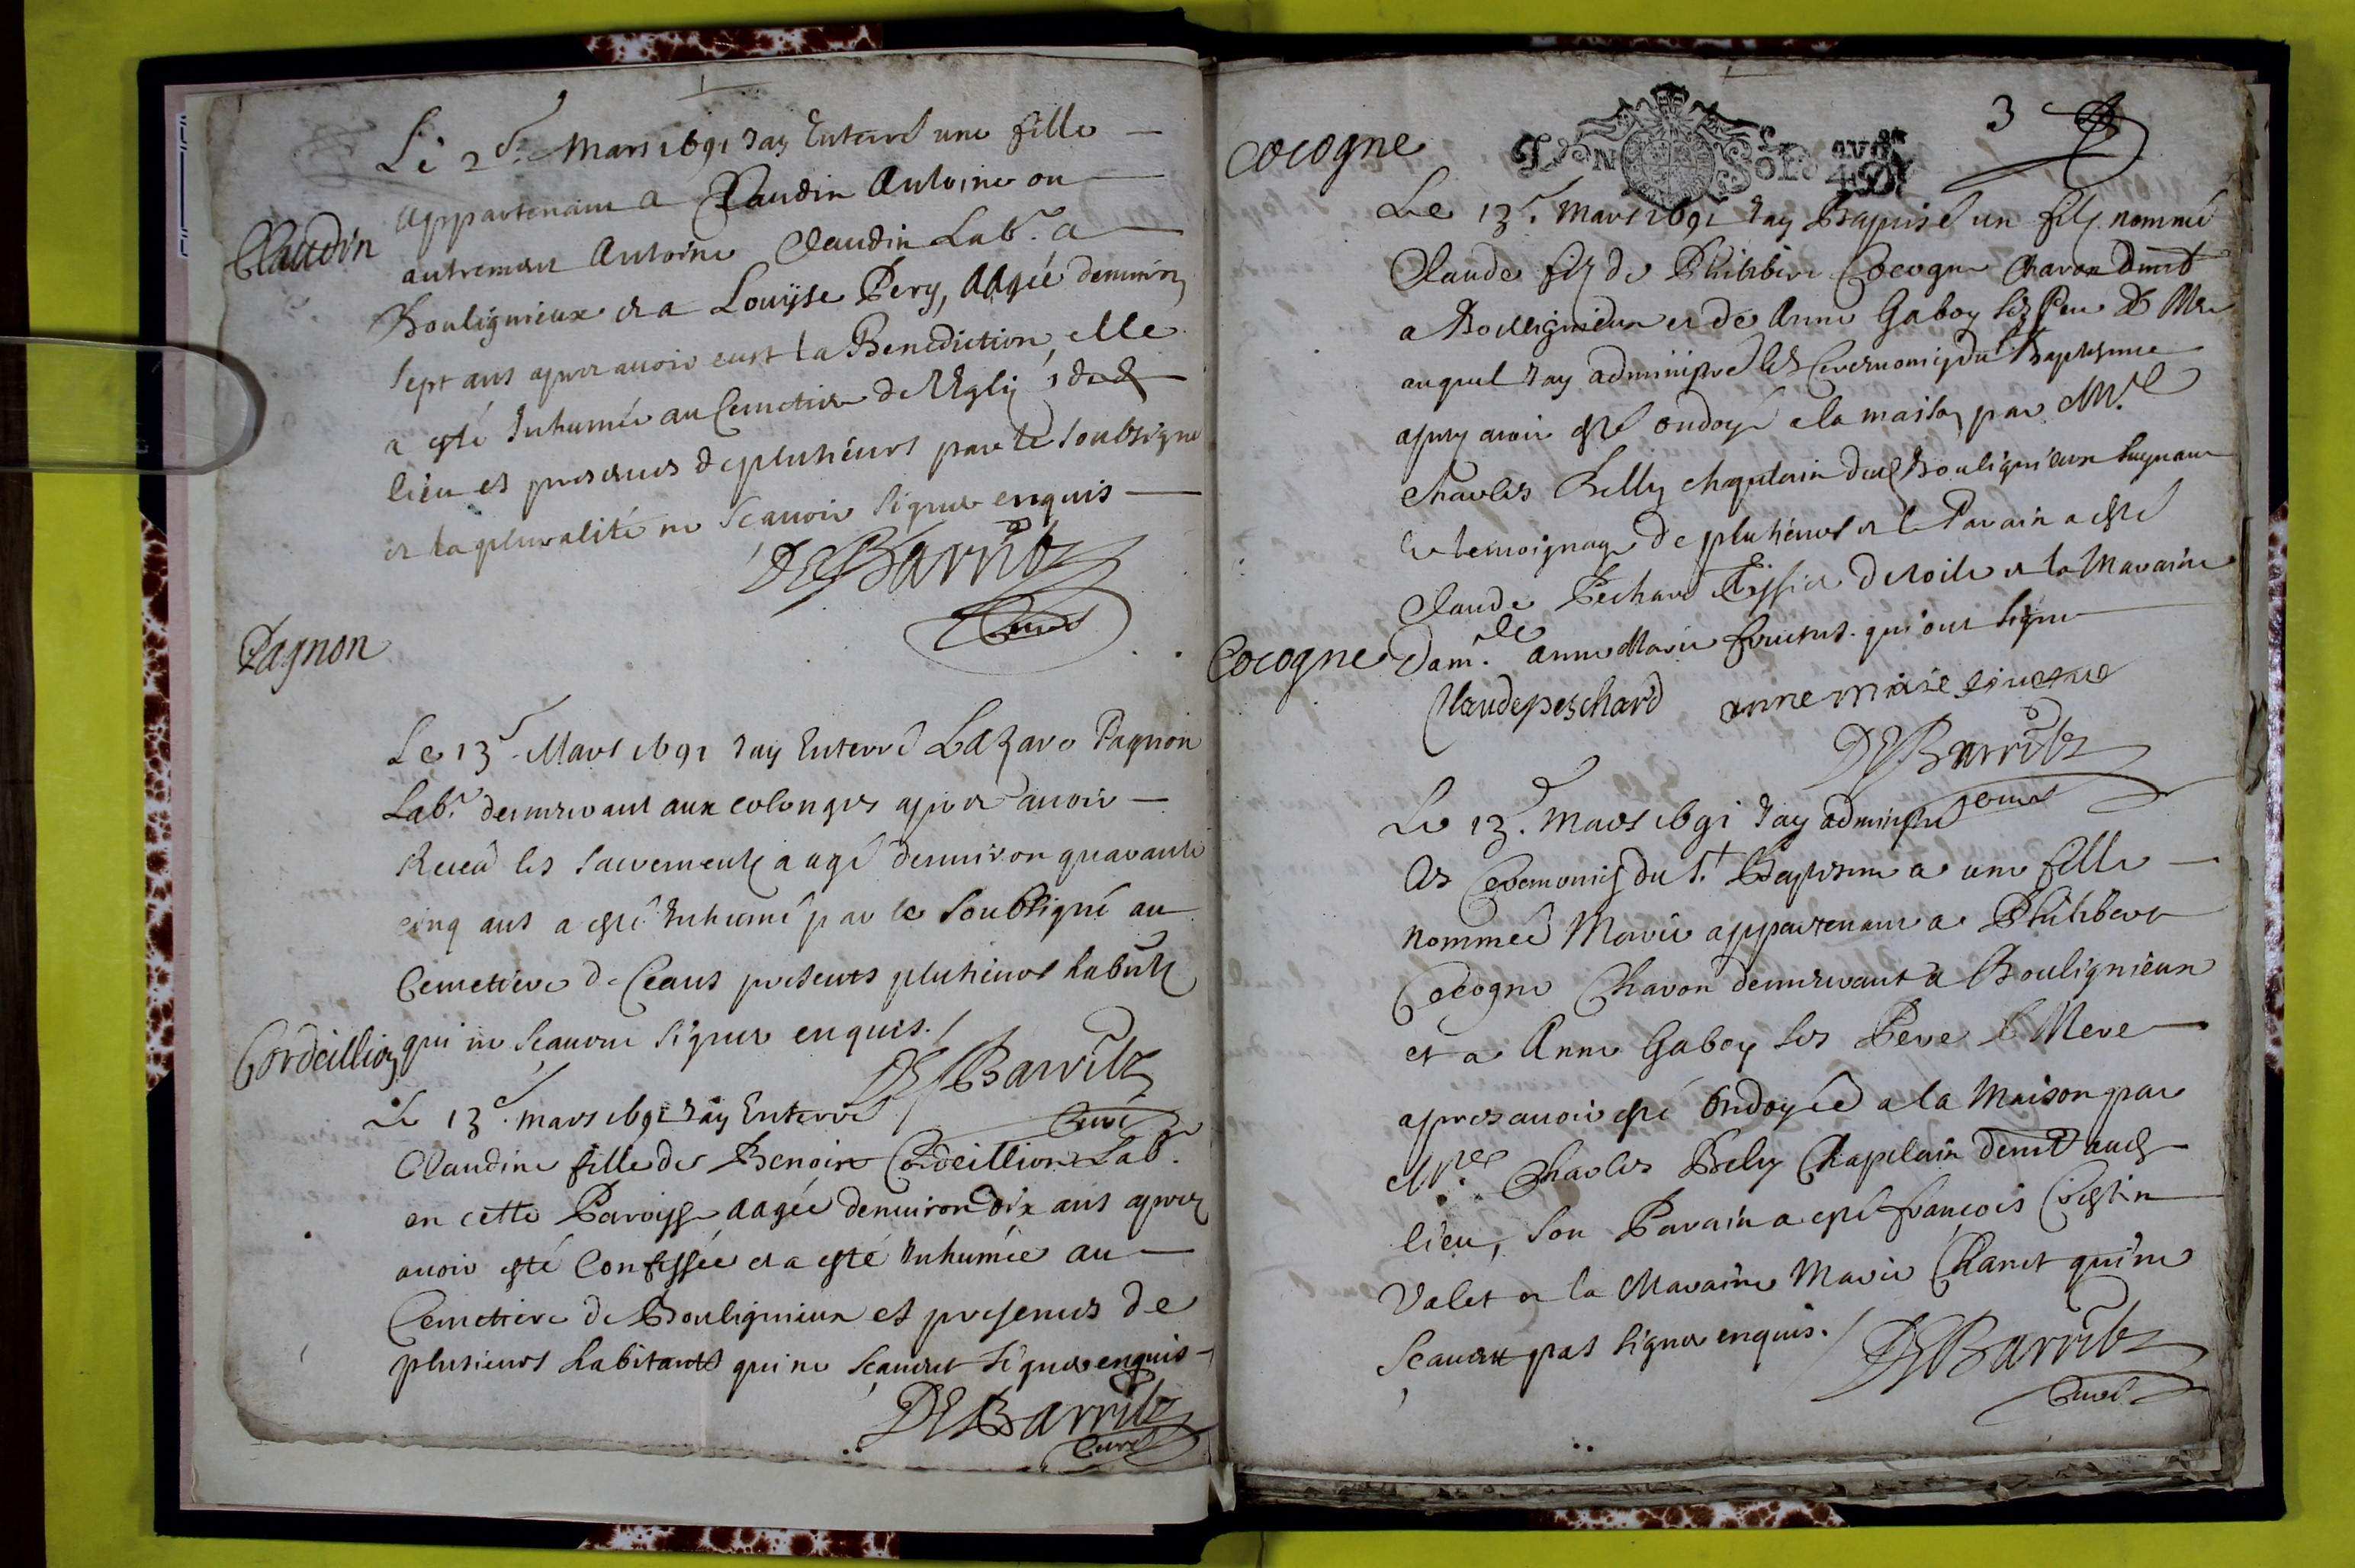 Le 2e. Mars 1691 Jay Enterré une fille
appartenant a Claudin Antoine ou
Claudin
autrement Antoine Claudin Labr. a
Boulignieux et a Louÿse Pery, aagée denviron
sept ans apres avoir eust la Benediction, elle
a esté Inhumée au Cemetiere de l'Eglise dud
lieu es presences de plusieurs par le soubsigné
et la pluralité ne scavoir signer enquis
DE Barritz
Curé
Pagnon
Le 13e. Mars 1691 Jay Enterré Lazare Pagnon
Labr. demeurant aux colonges apres avoir
Receu les sacrements aagé denviron quarante
cinq ans a esté Inhumé par le soubsigné au
Cemetiere de Ceans presents plusieurs habnts
Cordeillion
qui ne scavent signer enquis.
DE Barritz
Curé
Le 13e. mars 1691 Jay Enterré
Claudine fille de Benoist Cordeillion Lab.
en cette Paroisse aagée denviron dix ans apres
avoir esté Confessée et a esté Inhumée au
Cemetiere de Boulignieux es presences de
plusieurs habitants qui ne scavent signer enquis
DE Barritz
Curé
3
Cocogne
GEN
SOLS
4 D
Le 13e. Mars 1691 Jay Baptisé un filz nommé
Claude filz de Philibert Cocogne Charon dmt
a Boulignieux et de Anne Gaboy ses Pere & Mere
auquel Jay administré les Ceremonies du Baptesme
apres avoir esté ondoyé a la maison par Mre
Charles Belly chapelain dud Boulignieux suyvant
le temoignage de plusieurs et le Parain a esté
Claude Pechard Tissier de toile et la Maraine
Cocogne
Dam.lle anne Marie qui ont signé
Claude peschard anne marie
DE Barritz
Curé
Le 13e. Mars 1691 Jay administré
les Ceremonies du St. Baptesme a une fille
nommée Marie appartenant a Philibert
Cocogne Charon demeurant a Boulignieux
et a Anne Gaboy ses Pere & Mere
apres avoir esté Ondoyée a la Maison par
Mre Charles Bely Chapelain demt aud
lieu, son Parain a esté francois
Valet et la Maraine Marie Charet qui ne
Scavent pas signer enquis.
DE Barritz
Curé